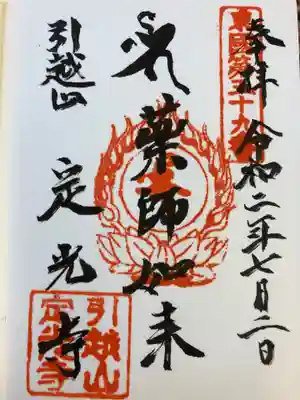 奉拝 令和二年七月二日
東国第五十九番
薬師如来
引越山
定光寺
引越山
定光寺